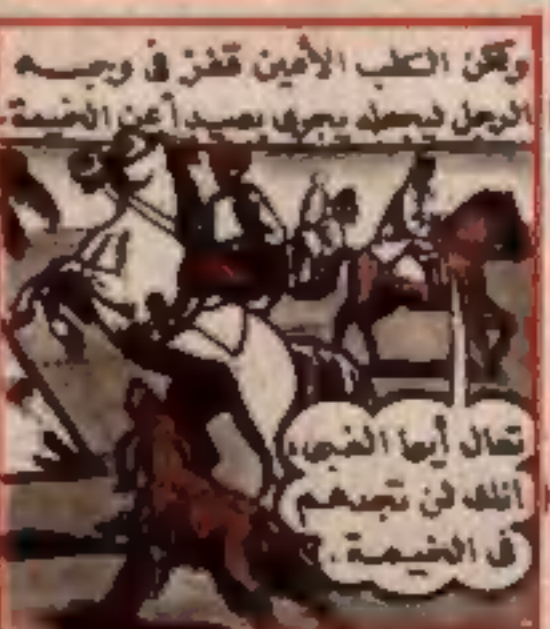 ولكن الكلب الأمين قفز فى وجه
الرجل ليجعله يجرى بعيدا عن الخيمة
تعال أيها الغبى،
انك لن تجدهم
فى الخيمة.